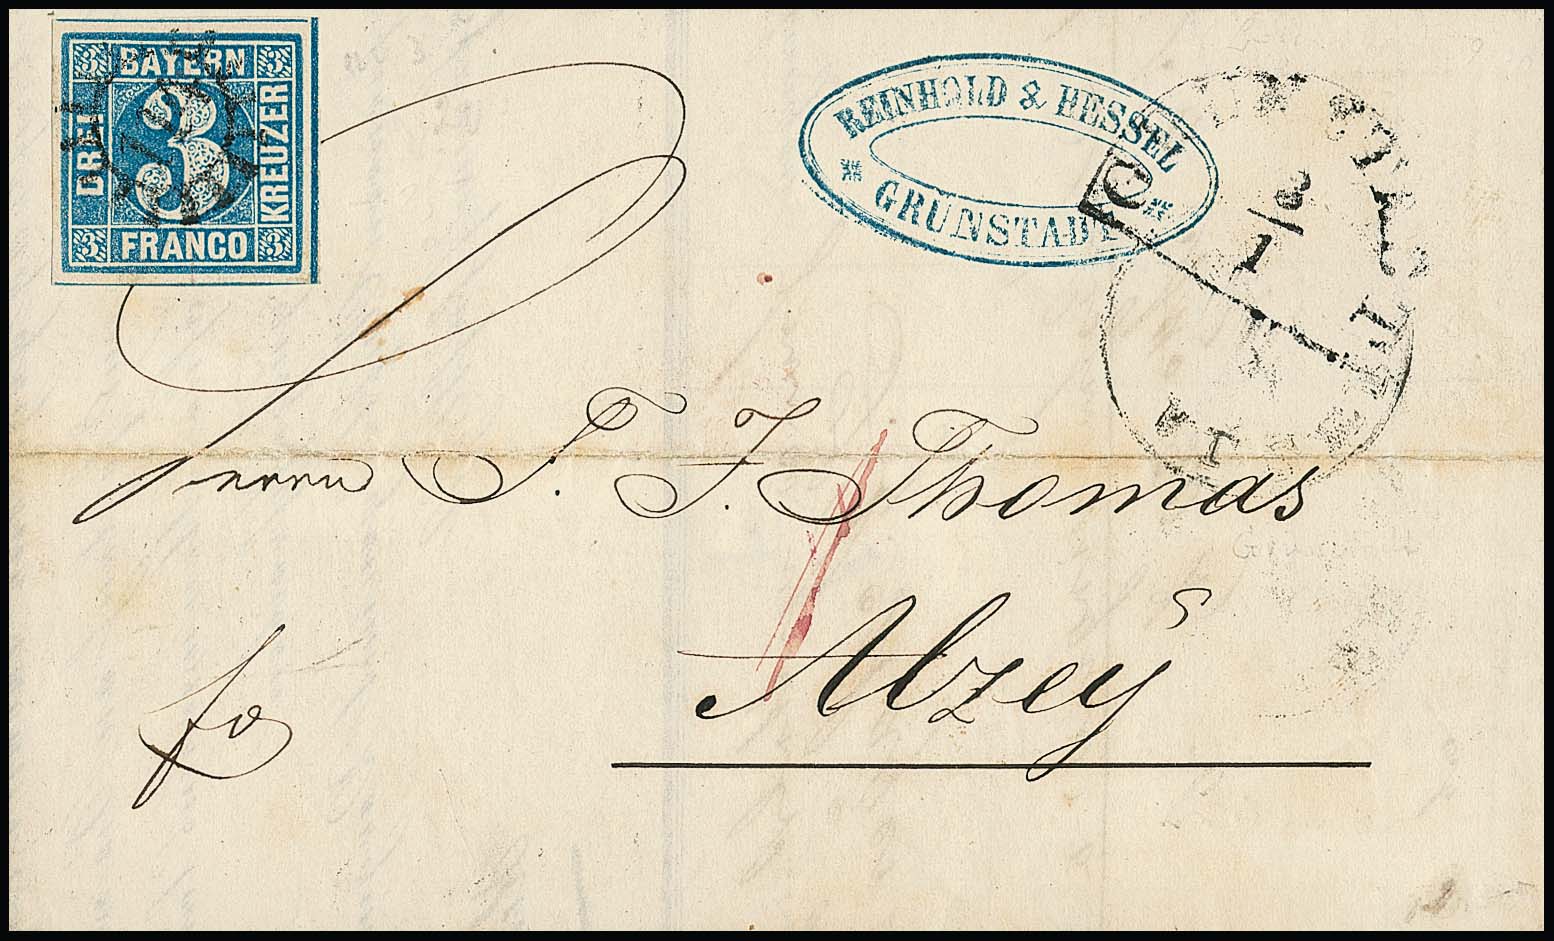 3 BAYERN 3
DREI 3 KREUZER
3 FRANCO 3
REINHOLD & HESSEL
GRÜNSTADT
3
1
Herrn T. J. Thomas
Alzey
fo